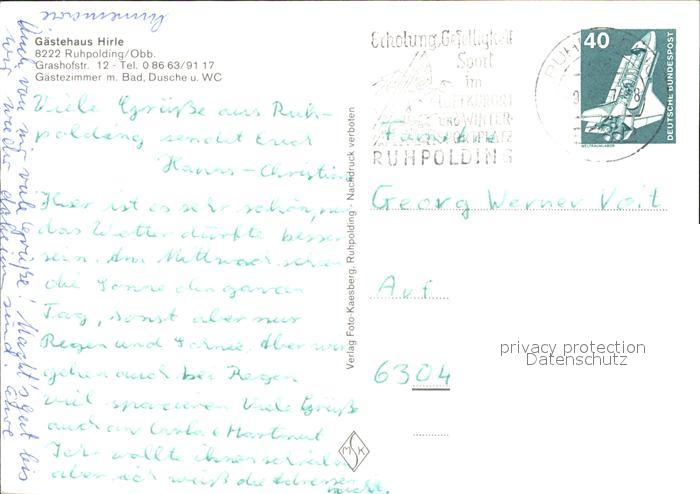 Gästehaus Hirle
8222 Ruhpolding/Obb.
Grashofstr. 12 - Tel. 0 86 63/91 17
Gästezimmer m. Bad, Dusche u. WC
Viele Grüße aus Ruh-
polding sendet Euch
Hanns-Christian
Hier ist es sehr schön, nur
das Wetter dürfte besser
sein. Am Mittwoch schien
die Sonne den ganzen
Tag, sonst aber nur
Regen und Schnee. Aber wir
gehen auch bei Regen
viel spazieren. Viele Grüße
auch an Ursula + Hartmut
Ich wollte ihnen schreiben
aber ich weiß die Adressen
nicht.
Auch von mir viele Grüße! Macht's gut bis
wir wieder daheim sind! Eure
Annemarie
Verlag Foto-Kaesberg, Ruhpolding - Nachdruck verboten
MSK
Erholung, Geselligkeit
Sport
im
LUFTKURORT
UND WINTER-
SPORTPLATZ
RUHPOLDING
40
DEUTSCHE BUNDESPOST
WELTRAUMLABOR
Familie
Georg Werner Voit
Auf
6304
privacy protection
Datenschutz